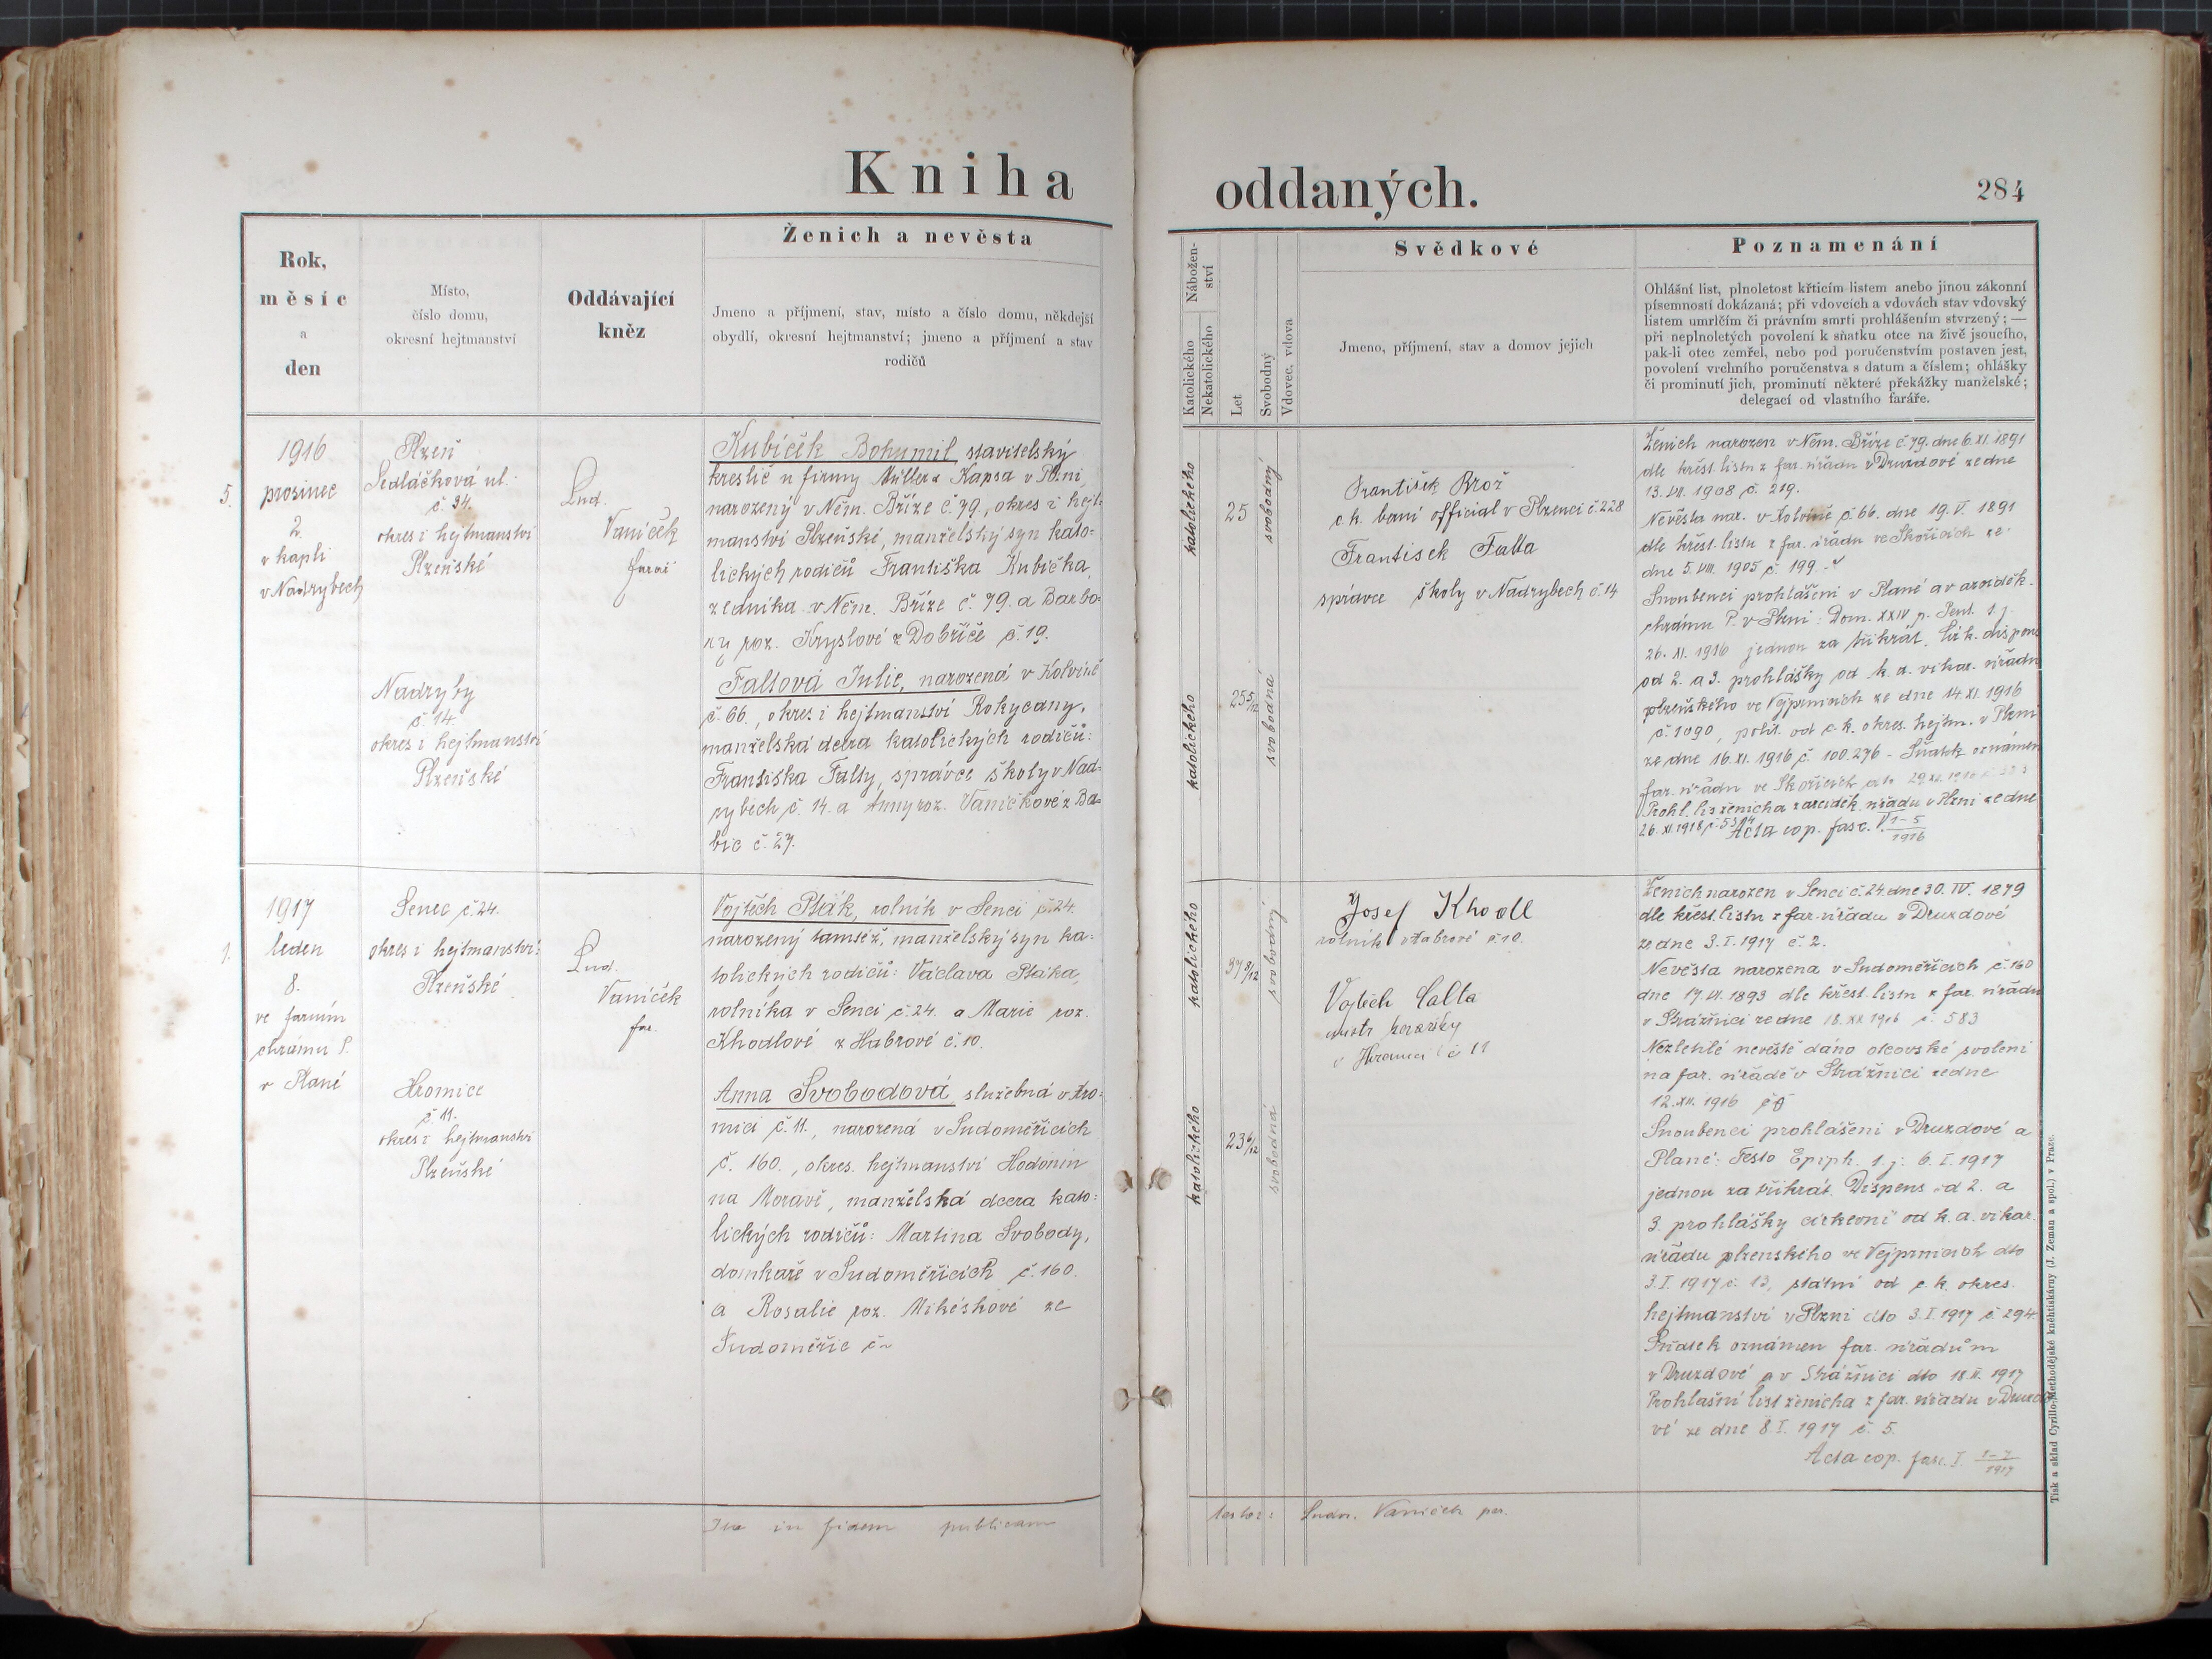 Kniha oddaných.
284
Rok,
měsíc
a
den
Místo,
číslo domu,
okresní hejtmanství
Oddávající
kněz
Ženich a nevěsta
Jmeno a příjmení, stav, místo a číslo domu, někdejší
obydlí, okresní hejtmanství; jmeno a příjmení a stav
rodičů
Nábožen-
ství
Katolického
Nekatolického
Let
Svobodný
Vdovec, vdova
Svědkové
Jmeno, příjmení, stav a domov jejich
Poznamenání
Ohlášní list, plnoletost křticím listem anebo jinou zákonní
písemností dokázaná; při vdovcích a vdovách stav vdovský
listem umrlčím či právním smrti prohlášením stvrzený; —
při neplnoletých povolení k sňatku otce na živě jsoucího,
pak-li otec zemřel, nebo pod poručenstvím postaven jest,
povolení vrchního poručenstva s datum a číslem; ohlášky
či prominutí jich, prominutí některé překážky manželské;
delegací od vlastního faráře.
5.
1916
prosinec
2.
v kapli
v Nadrybech
Plzeň
Sedláčková ul.
č. 34.
okres i hejtmanství
Plzeňské
Nadryby
č. 14
okres i hejtmanství
Plzeňské
Lud.
Vaníček
farář
Kubíček Bohumil, stavitelský
kreslič u firmy Müller a Kapsa v Plzni,
narozený v Něm. Bříze č. 79., okres i hejt-
manství Plzeňské, manželský syn kato-
lických rodičů Františka Kubíčka,
zedníka v Něm. Bříze č. 79. a Barbo-
ry roz. Kryslové z Dobříče č. 19.
Faltová Julie, narozená v Kolvíně
č. 66., okres i hejtmanství Rokycany,
manželská dcera katolických rodičů:
Františka Falty, správce školy v Nad-
rybech č. 14. a Anny roz. Vaníčkové z Ba-
bic č. 27.
katolického
25
svobodný
katolického
25 5/12
svobodná
František Brož
c. k. berní official v Plzenci č. 228
František Falta
správce školy v Nadrybech č. 14
Ženich narozen v Něm. Bříze č. 79. dne 6. XI. 1891
dle křest. listu z far. úřadu v Druzdové ze dne
13. 1908 č. 219.
Nevěsta nar. v Kolvíně č. 66. dne 19. V. 1891
dle křest. listu z far. úřadu ve Skořicích ze
dne 5. VIII. 1905 č. 199.
Snoubenci prohlášeni v Plané a v arciděk.
chrámu P. v Plzni: Dom. XXIV p. Pent. t. j.
26. XI. 1916 jednou za třikrát. Cirk. dispens
od 2. a 3. prohlášky od k. a. vikar. úřadu
plzeňského ve Vejprnicích ze dne 14. XI. 1916
č. 1090, polit. od c. k. okres. hejtm. v Plzni
ze dne 16. XI. 1916 č. 100.276 - Sňatek oznámen
far. úřadu ve Skořicích
Prohl. lis ženicha z arciděk. úřadu v Plzni ze dne
Acta cop. fasc. V. 1-5/1916
1.
1917
leden
8.
ve farním
chrámu P.
v Plané
Senec č. 24.
okres i hejtmanství:
Plzeňské
Hromice
č. 11.
okres i hejtmanství
Plzeňské
Lud.
Vaníček
far.
Vojtěch Pták, rolník v Senci č. 24.
narozený tamtéž, manželský syn ka-
tolických rodičů: Václava Ptáka,
rolníka v Senci č. 24. a Marie roz.
Khodlové z Habrové č. 10.
Anna Svobodová, služebná v Hro-
mici č. 11., narozená v Sudoměřicích
č. 160., okres. hejtmanství Hodonín
na Moravě, manželská dcera kato-
lických rodičů: Martina Svobody,
domkaře v Sudoměřicích č. 160.
a Rosalie roz. Mikéskové ze
Sudoměřic č.
katolického
37 8/12
svobodný
katolického
svobodná
Josef Khodl
rolník v Habrové č. 10.
Vojtěch
v Hromici č 11
Ženich narozen v Senci č. 24. dne 30. IV. 1879
dle křest. listu z far. úřadu v Druzdové
ze dne 3. I. 1917 č. 2.
Nevěsta narozena v Sudoměřicích č. 160
dne 1893 dle křest. listu z far. úřadu
v Strážnici ze dne 18. XII. 1916 č. 583
Nezletilé nevěstě dáno otcovské svolení
na far. úřadě v Strážnici ze dne
12. XII. 1916
Snoubenci prohlášeni v Druzdové a
Plané: Festo Epiph. t. j. 6. I. 1917
jednou za třikrát. Dispens od 2. a
3. prohlášky církevní od k. a. vikar.
úřadu plzeňského ve Vejprnicích dto
3. I. 1917 č. 13, státní od c. k. okres.
hejtmanství v Plzni dto 3. I. 1917 č. 294.
Sňatek oznámen far. úřadům
v Druzdové a v Strážnici dto 18. II. 1917
Prohlašní list ženicha z far. úřadu v Druzdo
vé ze dne 8. I. 1917 č. 5.
Acta cop. fasc. I. 1-7/1917
in fidem publicam
testor: Ludv. Vaníček par.
Tisk a sklad Cyrillo-Methodějské kněhtiskárny (J. Zeman a spol.) v Praze.